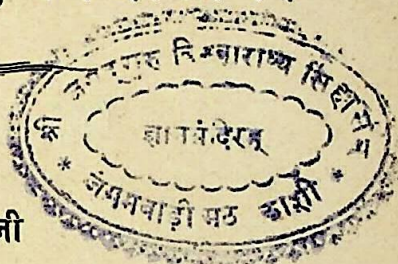 श्री जगद्गुरु विश्वाराध्य सिंहासन
ज्ञानमंदिरम्
* जंगमवाड़ी मठ काशी *
जी